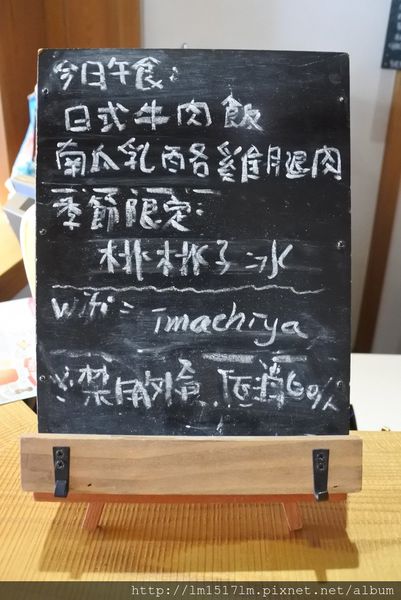 今日午食:
日式牛肉飯
南瓜乳酪雞腿肉
季節限定:
桃桃子冰
wifi = imachiya
禁用外食 低消60/人
http://lm1517lm.pixnet.net/album